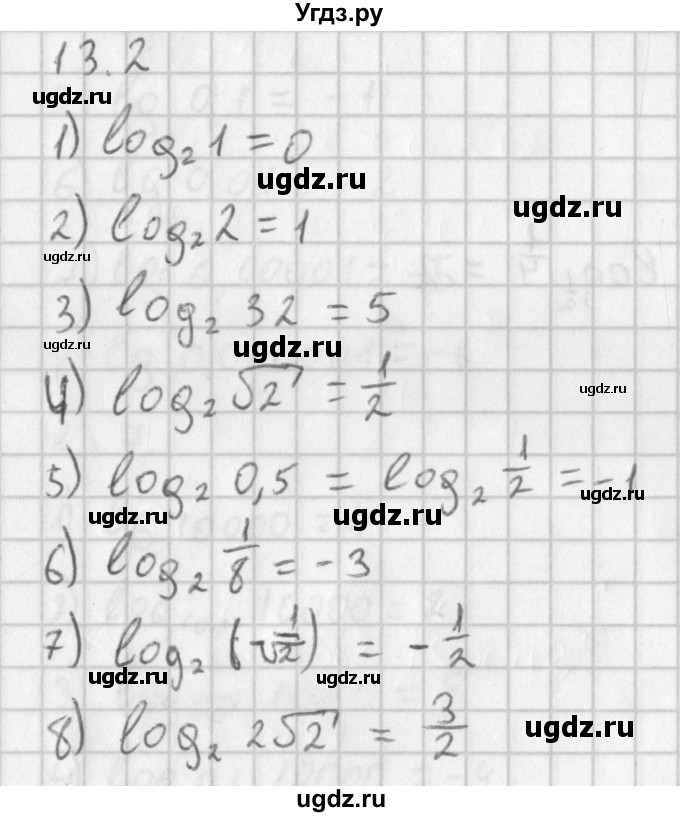 Угдз.ру
13.2
ugdz.ru
1) log₂ 1 = 0
ugdz.ru
ugdz.ru
2) log₂ 2 = 1
ugdz.ru
3) log₂ 32 = 5
ugdz.ru
ugdz.ru
4) log₂ √2 = 1/2
ugdz.ru
5) log₂ 0,5 = log₂ 1/2 = -1
ugdz.ru
ugdz.ru
ugdz.ru
6) log₂ 1/8 = -3
7) log₂ (√1/2) = -1/2
ugdz.ru
ugdz.ru
8) log₂ 2√2 = 3/2
ugdz.ru
ugdz.ru